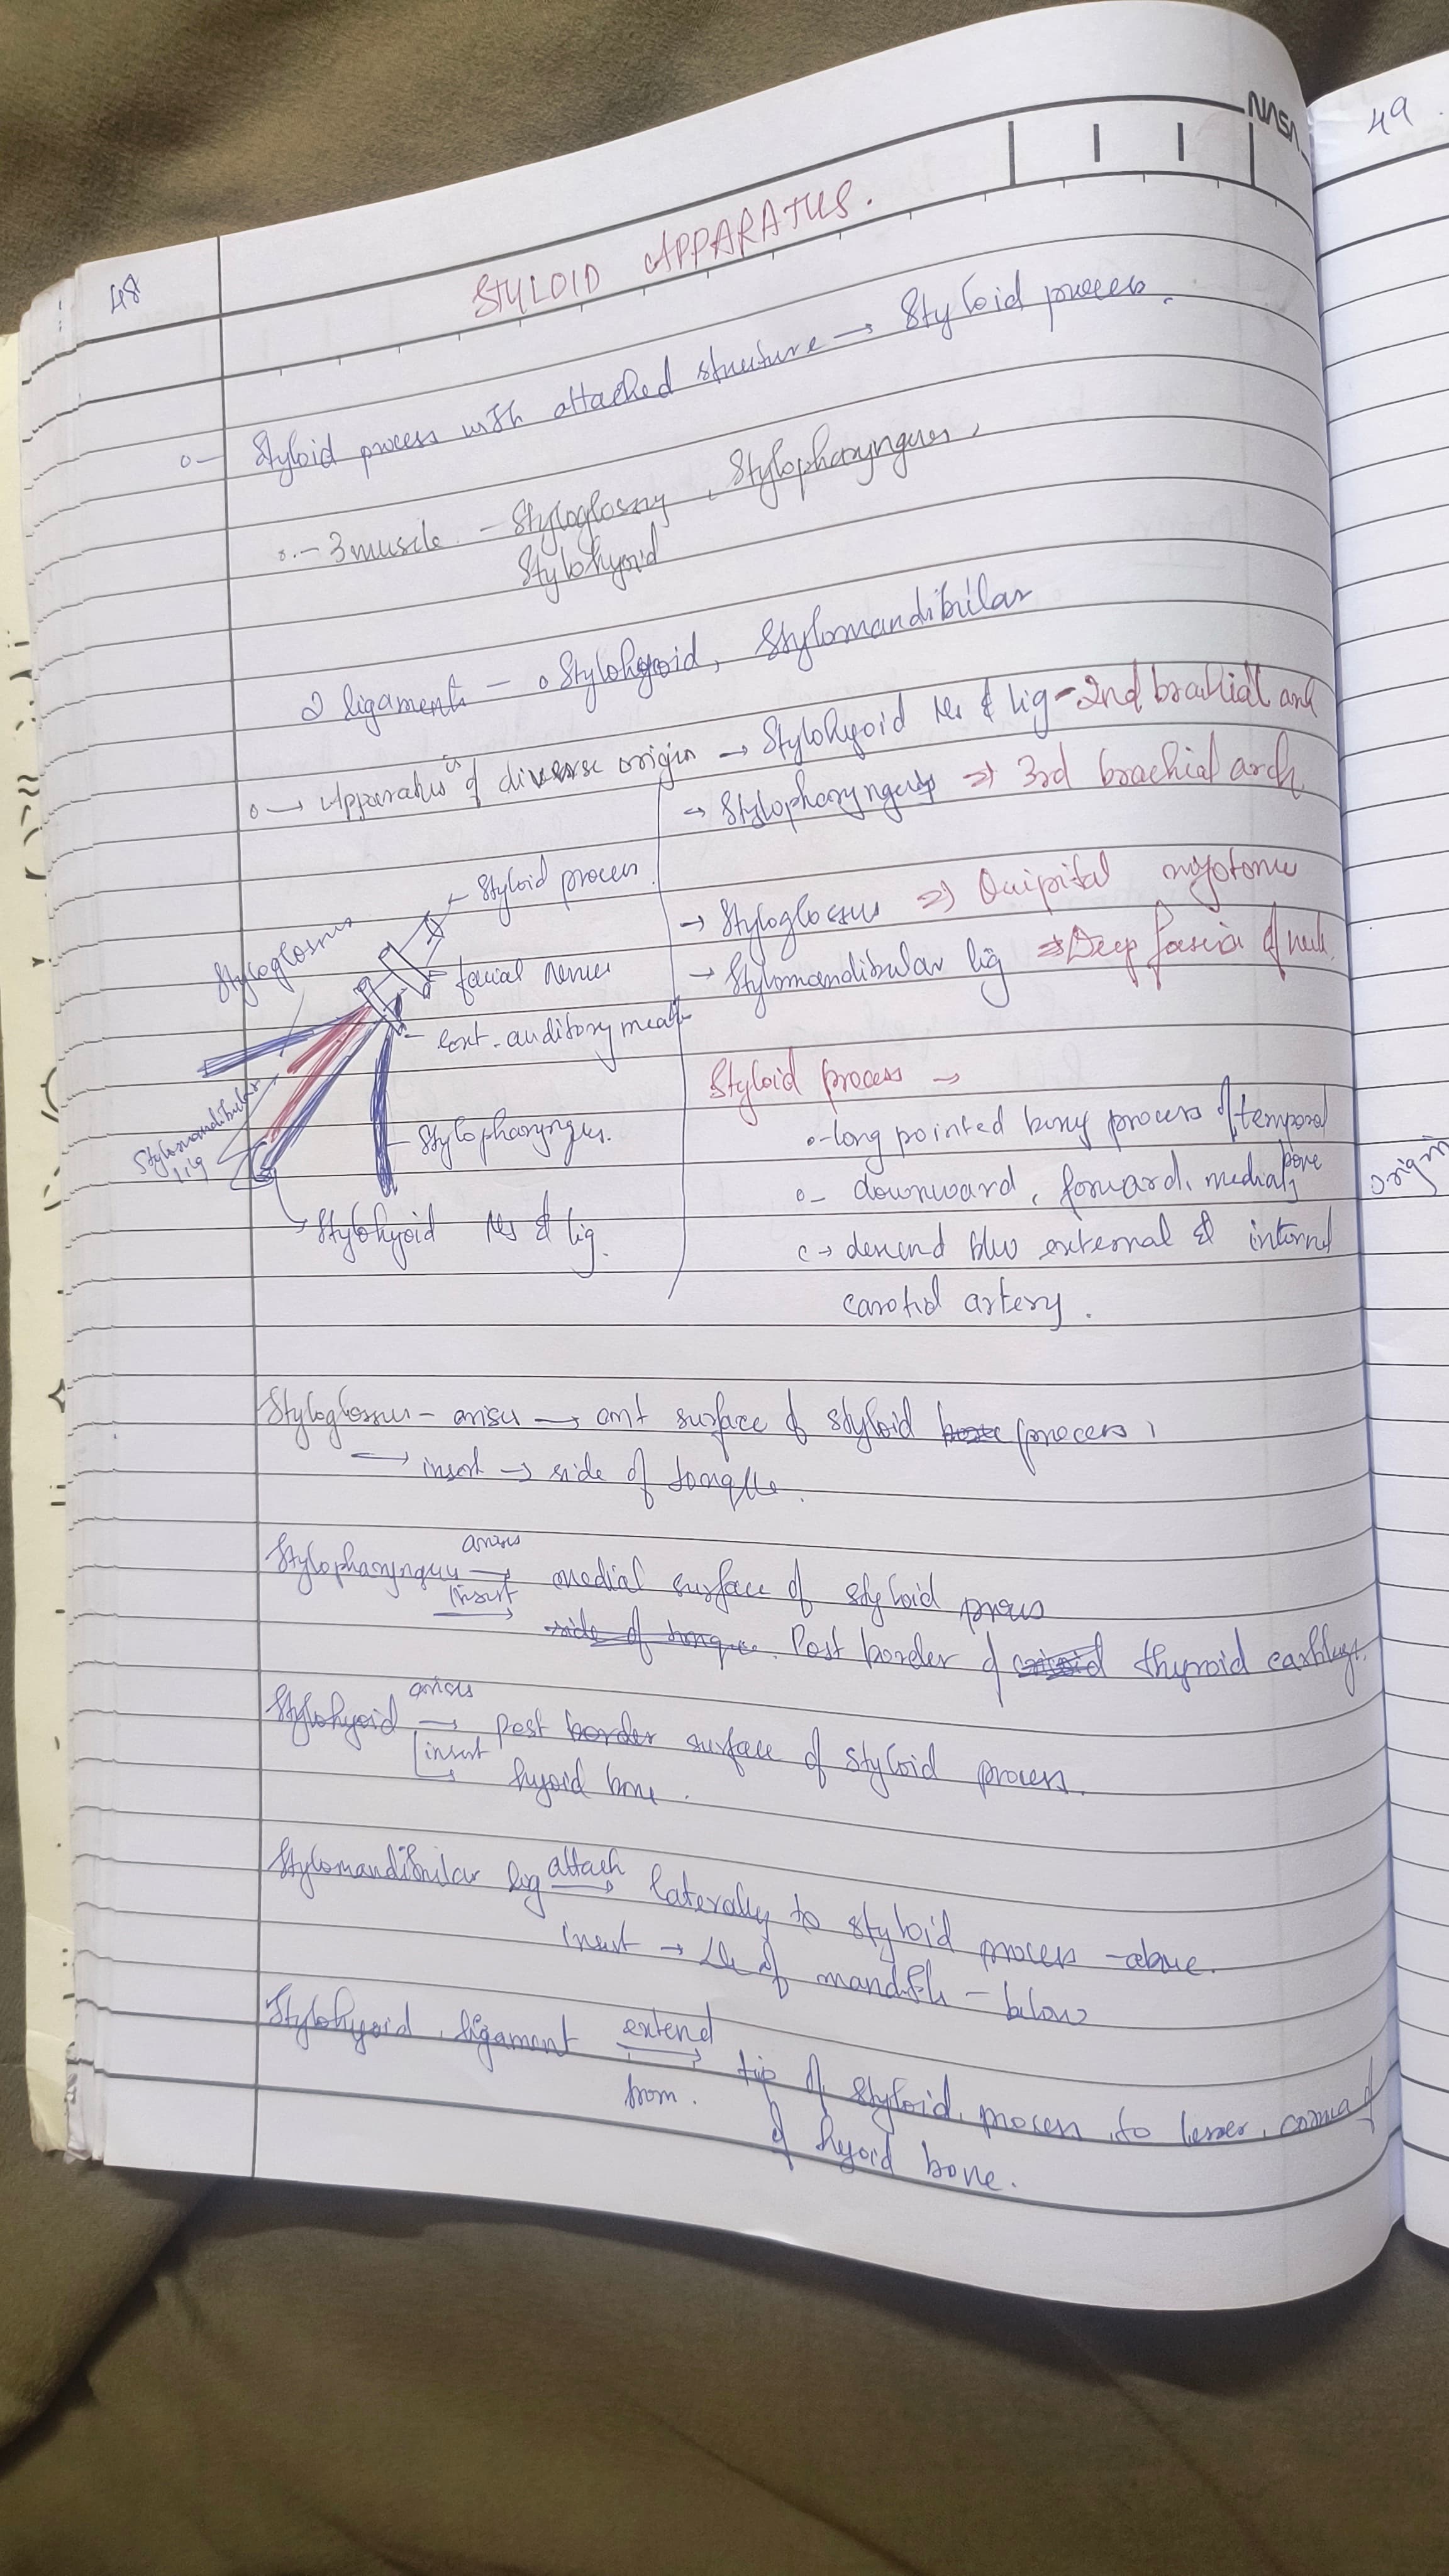 NASA
48
49
STYLOID APPARATUS.
Styloid process with attached structure → Styloid process.
3 muscle - Styloglossy, Stylopharyngeus,
Stylohyoid
2 ligaments - Stylohyoid, Stylomandibular
→ Apparatus is of diverse origin → Stylohyoid Ms & lig - 2nd brachial arch
→ Stylopharyngeus ⇒ 3rd brachial arch
→ Styloglossus ⇒ Occipital myotome
→ Stylomandibular lig ⇒ Deep fascia of neck.
Styloid process
Styloglossus
facial nerve
ext. auditory meat
Stylomandibular
lig
Stylopharyngus.
Stylohyoid Ms & lig.
Styloid process →
long pointed bony process of temporal
bone
downward, forward, medially
→ descend b/w external & internal
carotid artery.
origin
Styloglossus - arises → ant surface of styloid process,
→ insert → side of tongue.
Stylopharyngus arises → medial surface of styloid process
insert → side of tongue. Post border of thyroid cartilage.
Stylohyoid arises → post border surface of styloid process.
insert → hyoid bone.
Stylomandibular lig attach → laterally to styloid process - above.
insert → Le of mandible - below
Stylohyoid ligament extend → tip of styloid process to lesser cornua of
from.
of hyoid bone.